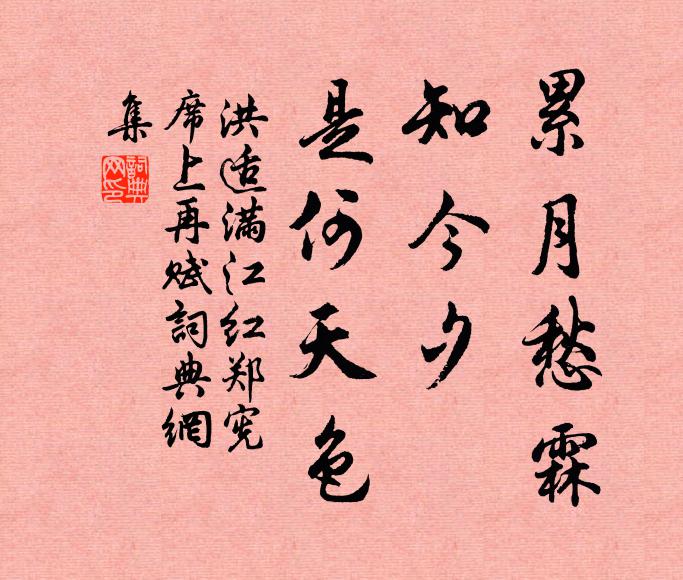 累月愁霖
知今夕
是何天色
洪适满江红郑宪
席上再赋詞典網
集
詞典網印